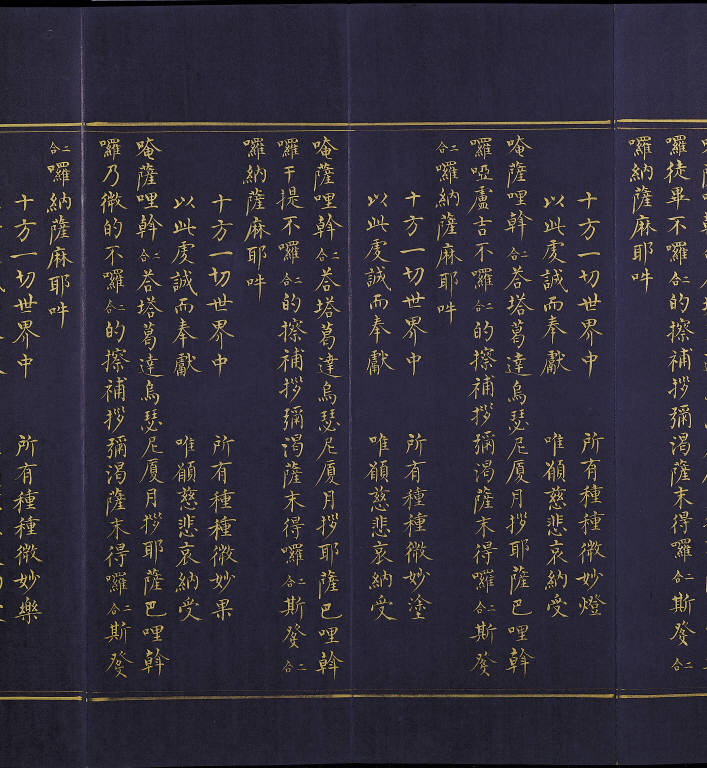 囉徒畢不囉二合的擦補拶彌渴薩末得囉二合斯癹二合
囉納薩麻耶吽
十方一切世界中 所有種種微妙燈
以此虔誠而奉獻 唯願慈悲哀納受
唵薩哩幹二合荅塔葛達烏瑟尼厦月拶耶薩巴哩幹
囉啞盧吉不囉二合的擦補拶彌渴薩末得囉二合斯癹
二合囉納薩麻耶吽
十方一切世界中 所有種種微妙塗
以此虔誠而奉獻 唯願慈悲哀納受
唵薩哩幹二合荅塔葛達烏瑟尼厦月拶耶薩巴哩幹
囉干提不囉二合的擦補拶彌渴薩末得囉二合斯癹二合
囉納薩麻耶吽
十方一切世界中 所有種種微妙果
以此虔誠而奉獻 唯願慈悲哀納受
唵薩哩幹二合荅塔葛達烏瑟尼厦月拶耶薩巴哩幹
囉乃微的不囉二合的擦補拶彌渴薩末得囉二合斯癹
二合囉納薩麻耶吽
十方一切世界中 所有種種微妙樂